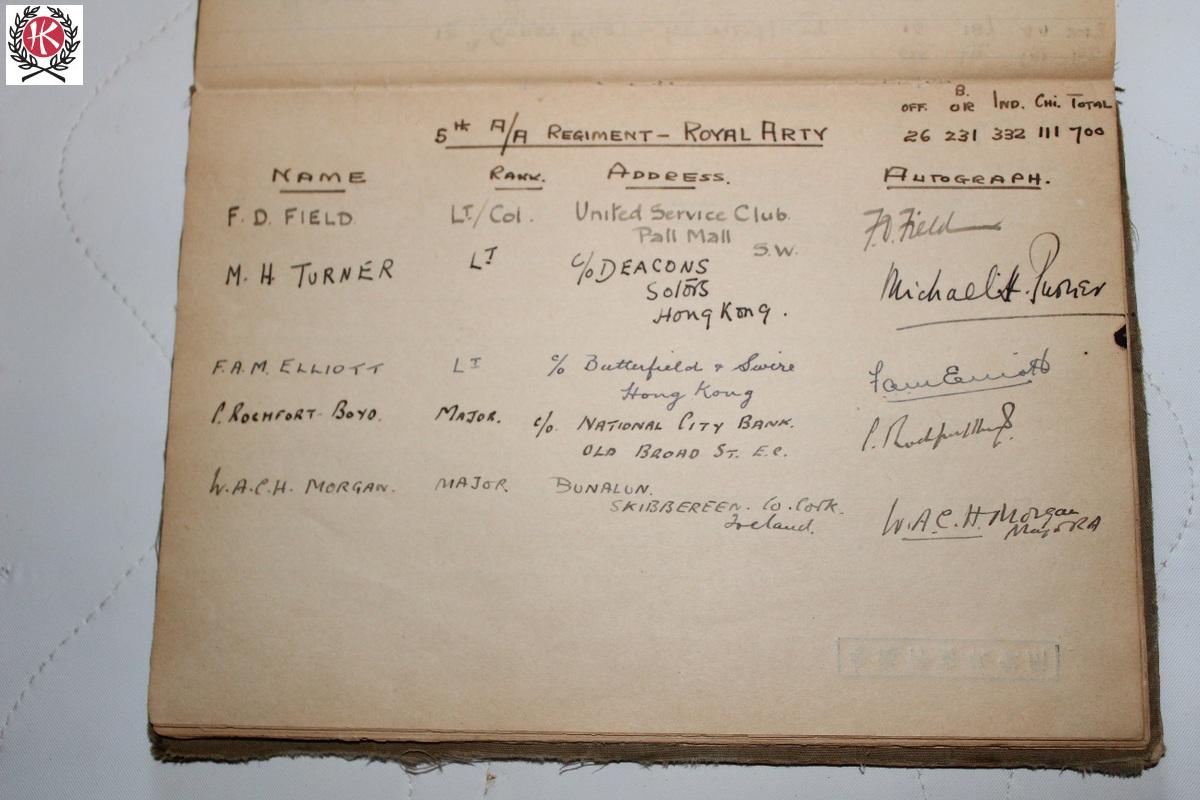 OFF. B. OR IND. CHI. TOTAL
26 231 332 111 700
5TH A/A REGIMENT - ROYAL ARTY
NAME RANK. ADDRESS. AUTOGRAPH.
F. D. FIELD LT/COL. United Service Club. F.D. Field
Pall Mall
S.W.
M. H. TURNER LT c/o DEACONS Michael H. Turner
SOLTRS
Hong Kong.
F.A.M. ELLIOTT LT c/o Butterfield & Swire Fam Elliott
Hong Kong
P. ROCHFORT-BOYD. MAJOR. c/o. NATIONAL CITY BANK. P.
OLD BROAD ST. E.C.
W.A.C.H. MORGAN. MAJOR DUNALUN.
SKIBBEREEN. Co. Cork. W.A.C.H. Morgan
Ireland. Major RA